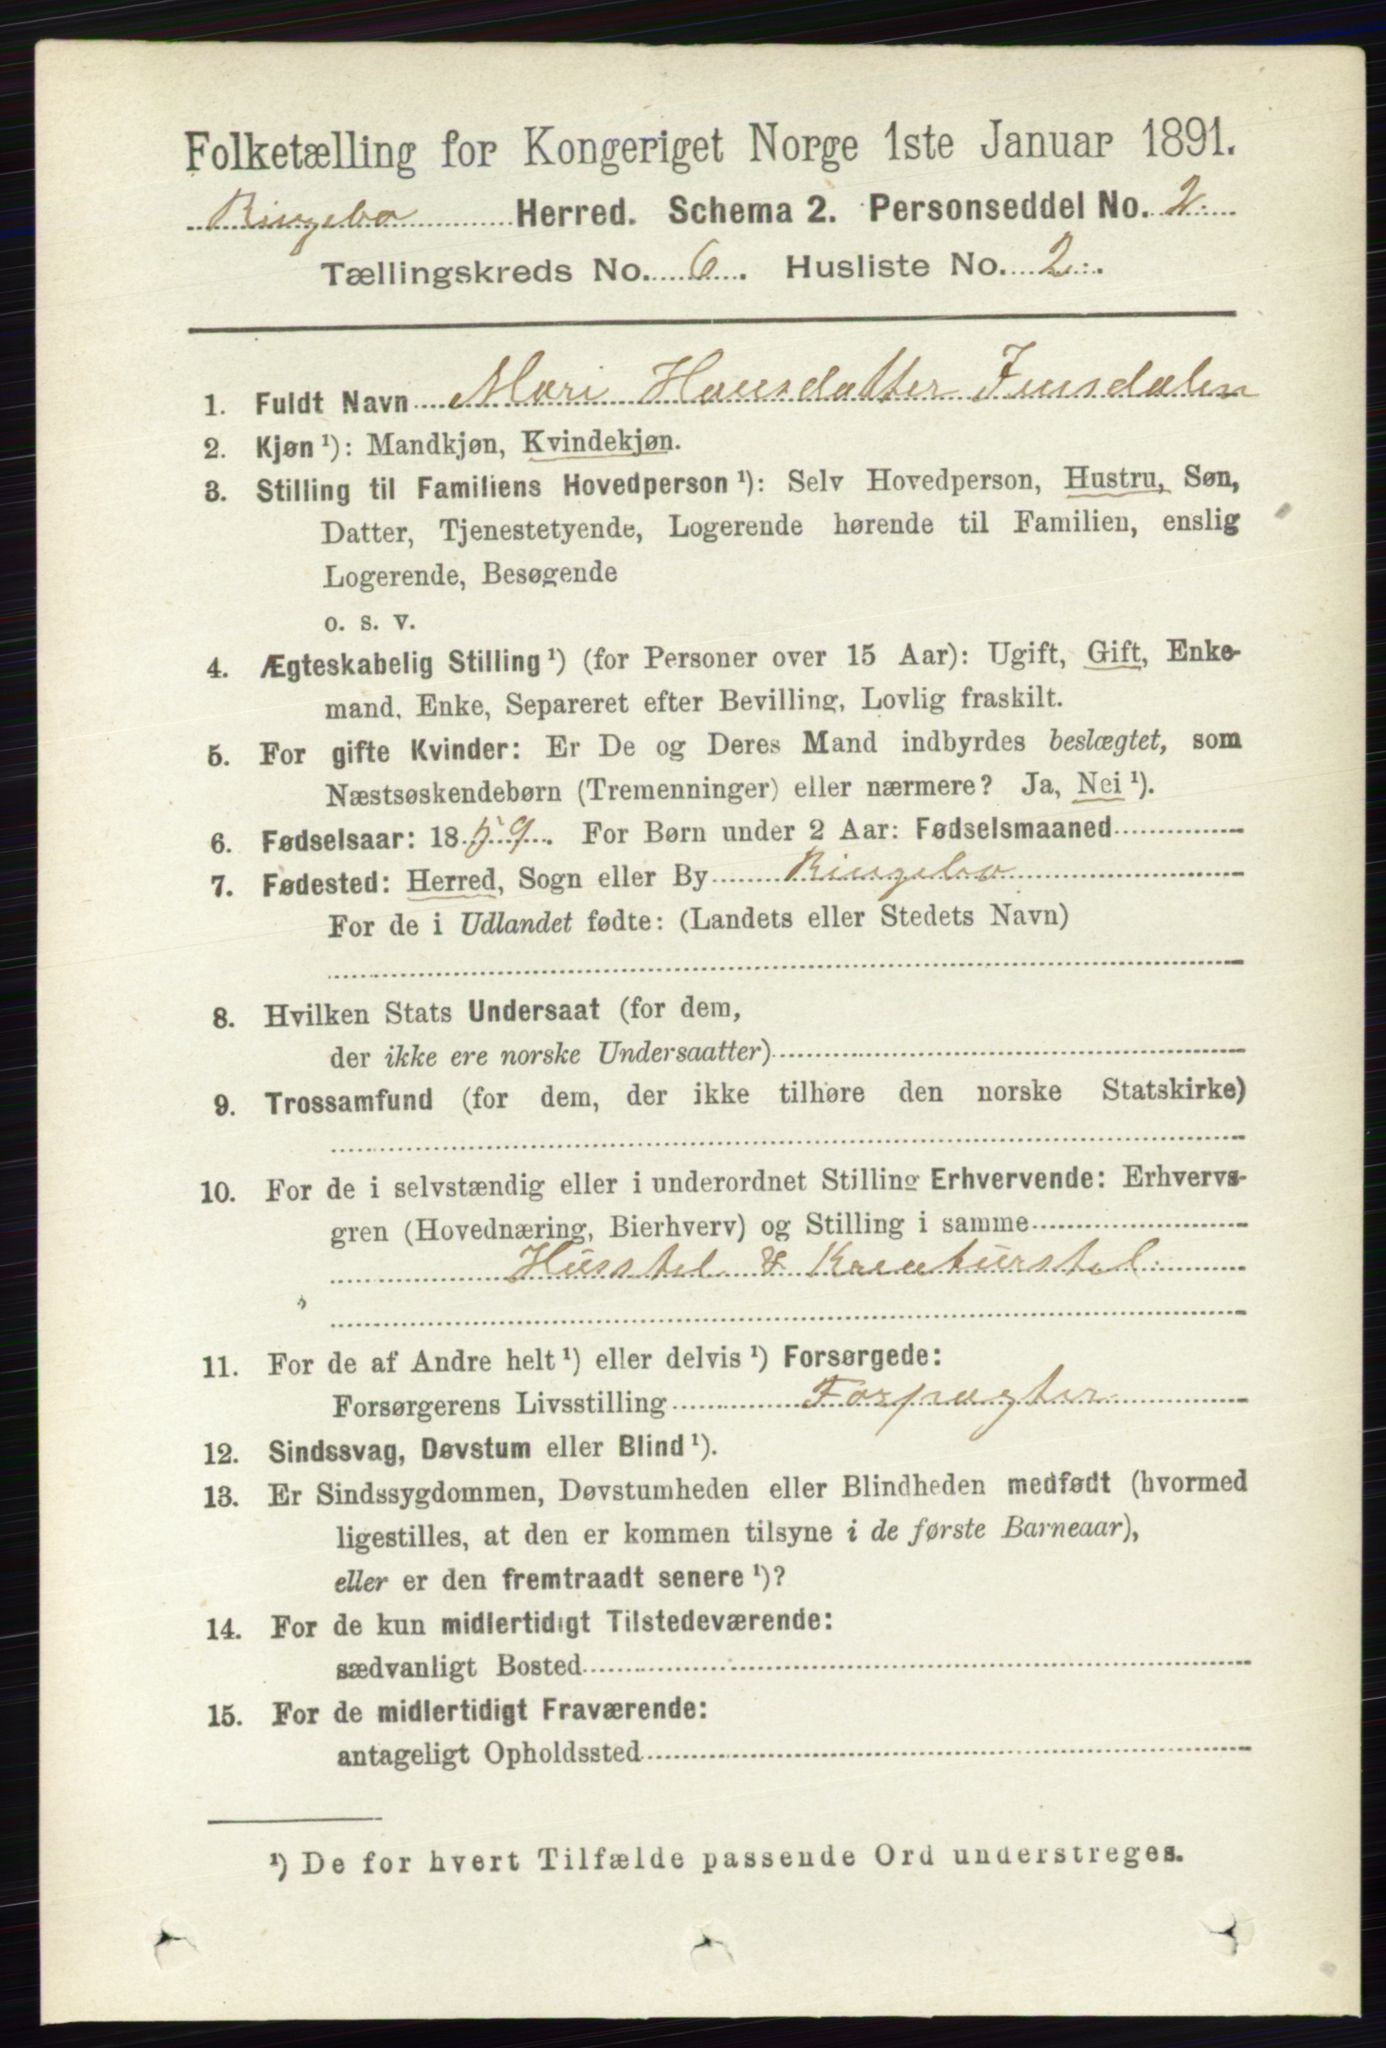 Folketælling for Kongeriget Norge 1ste Januar 1891.
Ringebo Herred. Schema 2. Personseddel No. 2.
Tællingskreds No. 6. Husliste No. 2.
1. Fuldt Navn Mari Hansdatter
2. Kjøn ¹): Mandkjøn, Kvindekjøn.
3. Stilling til Familiens Hovedperson ¹): Selv Hovedperson, Hustru, Søn,
Datter, Tjenestetyende, Logerende hørende til Familien, enslig
Logerende, Besøgende
o. s. v.
4. Ægteskabelig Stilling ¹) (for Personer over 15 Aar): Ugift, Gift, Enke-
mand, Enke, Separeret efter Bevilling, Lovlig fraskilt.
5. For gifte Kvinder: Er De og Deres Mand indbyrdes beslægtet, som
Næstsøskendebørn (Tremenninger) eller nærmere? Ja, Nei ¹).
6. Fødselsaar: 1859. For Børn under 2 Aar: Fødselsmaaned
7. Fødested: Herred, Sogn eller By Ringebo
For de i Udlandet fødte: (Landets eller Stedets Navn)
8. Hvilken Stats Undersaat (for dem,
der ikke ere norske Undersaatter)
9. Trossamfund (for dem, der ikke tilhøre den norske Statskirke)
10. For de i selvstændig eller i underordnet Stilling Erhvervende: Erhvervs-
gren (Hovednæring, Bierhverv) og Stilling i samme
Husstel & Kreaturstel
11. For de af Andre helt ¹) eller delvis ¹) Forsørgede:
Forsørgerens Livsstilling Forpagter
12. Sindssvag, Døvstum eller Blind ¹).
13. Er Sindssygdommen, Døvstumheden eller Blindheden medfødt (hvormed
ligestilles, at den er kommen tilsyne i de første Barneaar),
eller er den fremtraadt senere ¹)?
14. For de kun midlertidigt Tilstedeværende:
sædvanligt Bosted
15. For de midlertidigt Fraværende:
antageligt Opholdssted
¹) De for hvert Tilfælde passende Ord understreges.